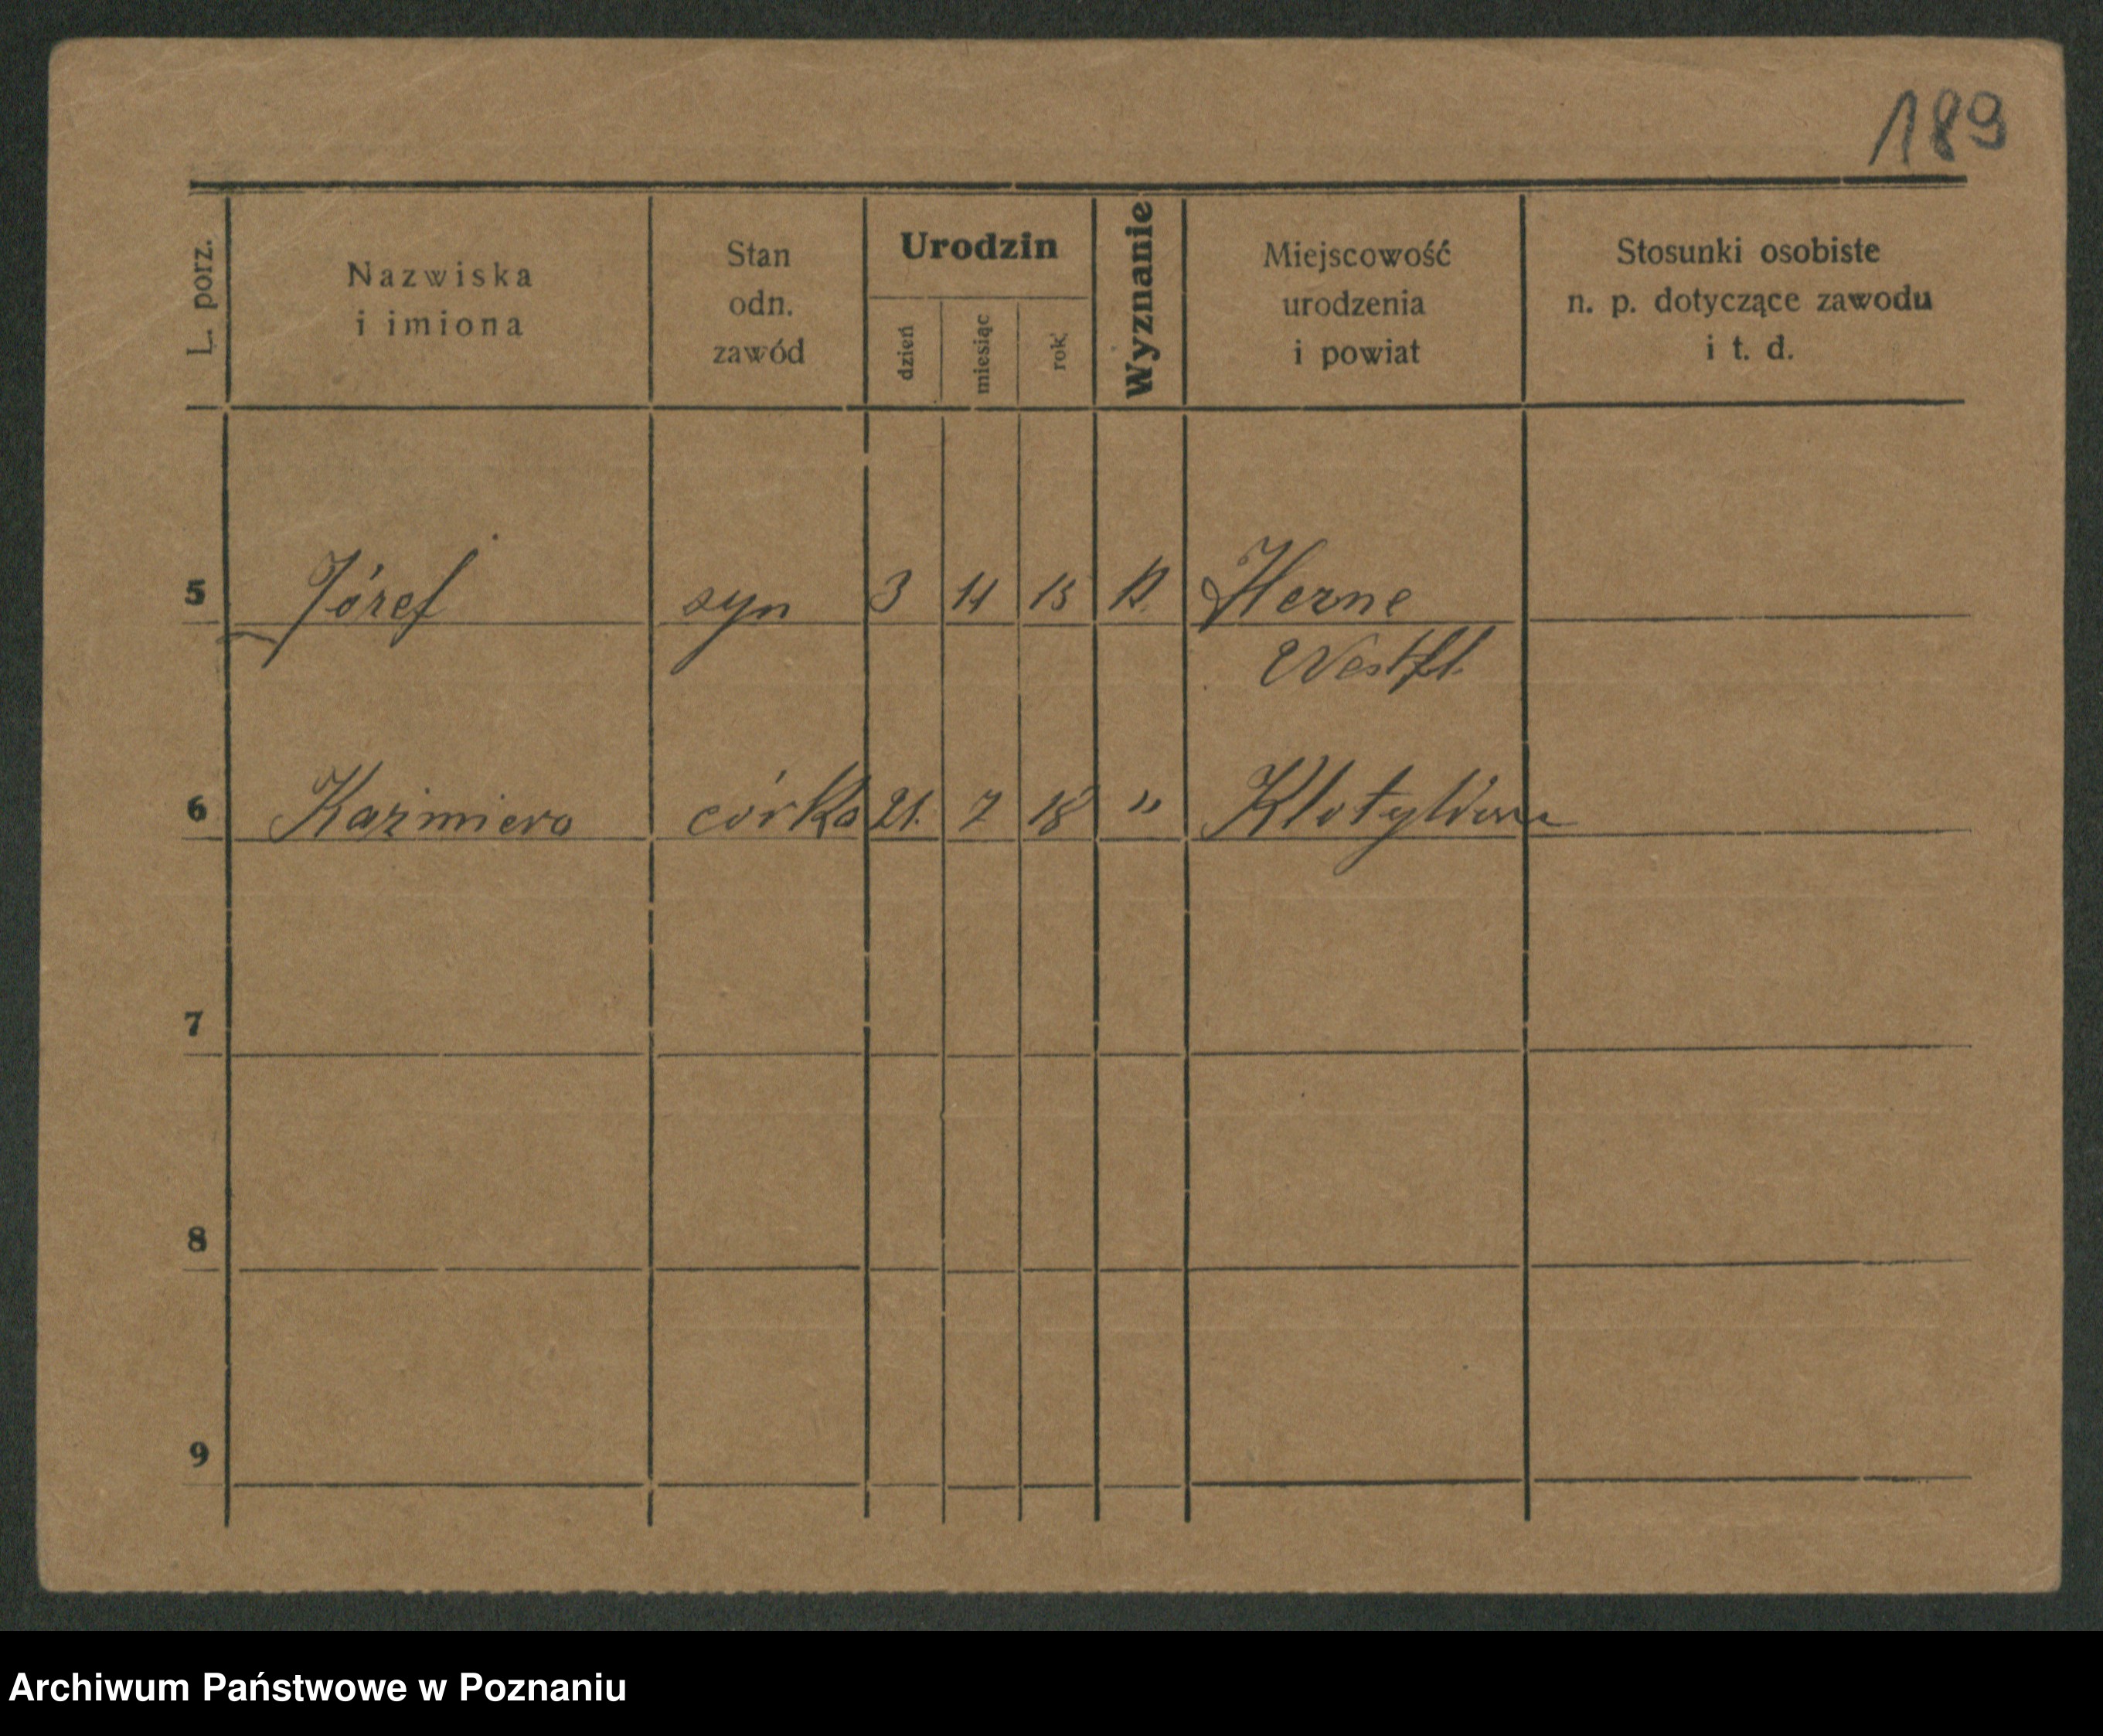 189
L. porz.
Nazwiska
i imiona
Stan
odn.
zawód
Urodzin
dzień
miesiąc
rok
Wyznanie
Miejscowość
urodzenia
i powiat
Stosunki osobiste
n. p. dotyczące zawodu
i t. d.
5 Józef syn 3 11 15 Herne
Westfl.
6 Kazimiera córka 21. 7 18 "
7
8
9
Archiwum Państwowe w Poznaniu